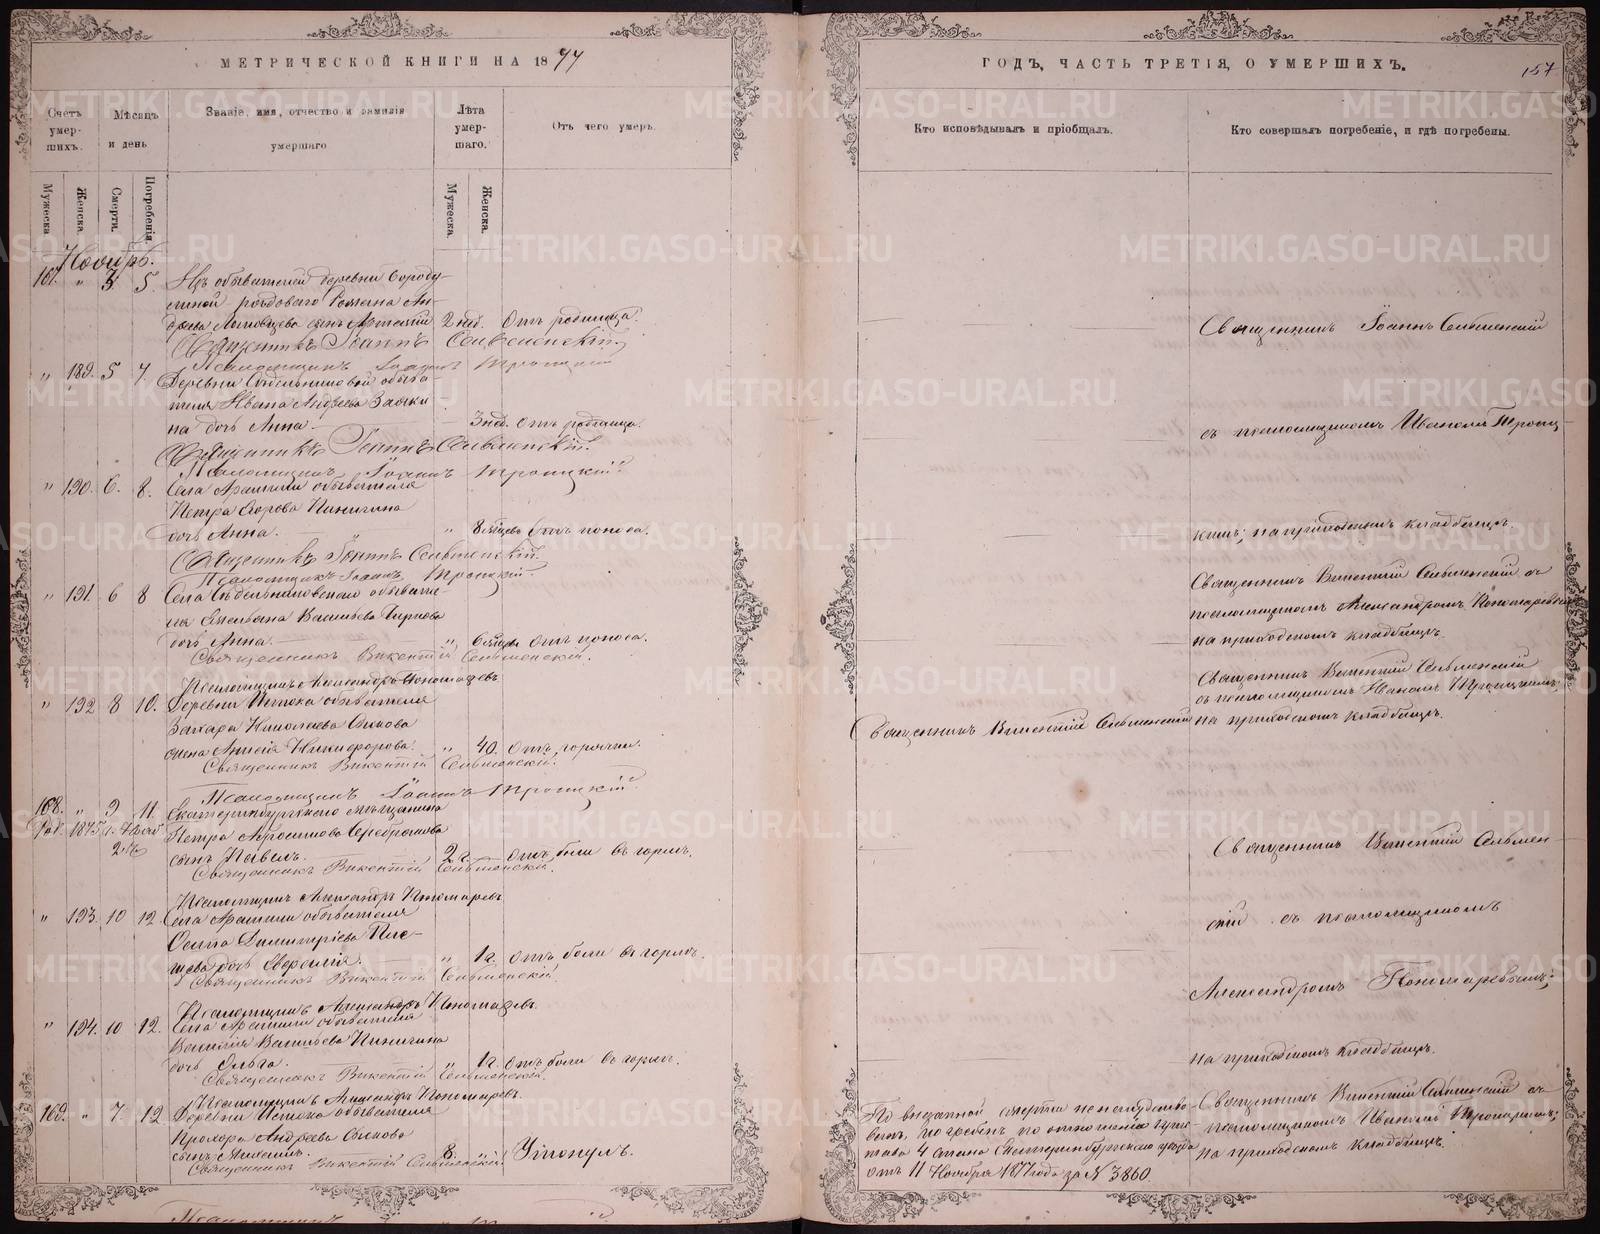 МЕТРИЧЕСКОЙ КНИГИ НА 1877
Счетъ умерших.
Мѣсяцъ и день
Званіе, имя, отчество и фамилія умершаго
Лѣта умершаго.
Отъ чего умеръ.
Мужеска.
Женска.
Смерти.
Погребенія.
Мужеска.
Женска.
Ноябрь.
167. " 3. 5.
дрѣева сынъ 2 нед. Отъ родимца.
Священникъ Іоаннъ Сельменскій.
Псаломщикъ Іоаннъ Троицкій
" 189. 5 7. Деревни обыва-
теля Ивана Андреева
на дочь Анна. 3 нед. Отъ родимца.
Священникъ Іоаннъ Сельменскій.
Псаломщикъ Іоаннъ Троицкій
" 190. 6. 8. Села Арамили обывателя
Петра Егорова Пинигина
дочь Анна. " 8 мѣсяцев Отъ поноса.
Священникъ Іоаннъ Сельменскій.
Псаломщикъ Іоаннъ Троицкій.
" 191. 6 8 Села обывате-
ля Емельяна Васильева
дочь Анна. " 6 Отъ поноса.
Священникъ Викентій Сельменскій.
Псаломщикъ Александръ Пономаревъ
" 192 8 10. Деревни Истока обывателя
Захара Николаева
жена Никифорова. " 40. Отъ горячки.
Священникъ Викентій Сельменскій.
Псаломщикъ Іоаннъ Троицкій.
168. " 9 11. Екатеринбургскаго мѣщанина
Род. 1875 г.
Петра Серебрякова
сынъ Павелъ. 2 г. отъ боли въ горлѣ.
Священникъ Викентій Сельменскій.
Псаломщикъ Александръ Пономаревъ
" 193. 10 12. Села Арамили обывателя
Осипа Димитріева
дочь " 1 г. отъ боли въ горлѣ.
Священникъ Викентій Сельменскій.
Псаломщикъ Александръ Пономаревъ.
" 194. 10 12. Села Арамили обывателя
Василія Васильева Пинигина
дочь Ольга. " 1 г. отъ боли въ горлѣ.
Священникъ Викентій Сельменскій.
Псаломщикъ Александръ Пономаревъ.
169. " 7. 12 Деревни Истока обывателя
Прохора Андреева
сынъ 8. Утонулъ.
Священникъ Викентій Сельменскій
ГОДЪ, ЧАСТЬ ТРЕТІЯ, О УМЕРШИХЪ.
157
Кто исповѣдывалъ и пріобщалъ.
Кто совершалъ погребеніе, и гдѣ погребены.
Священникъ Іоаннъ Сельменскій
съ псаломщикомъ Иваномъ Троиц-
кимъ; на приходскомъ кладбищѣ.
Священникъ Викентій Сельменскій съ
псаломщикомъ Александромъ Пономаревымъ
на приходскомъ кладбищѣ.
Священникъ Викентій Сельменскій
съ псаломщикомъ Иваномъ Троицкимъ;
Священникъ Викентій Сельменскій на приходскомъ кладбищѣ.
Священникъ Викентій Сельмен-
скій съ псаломщикомъ
Александромъ Пономаревымъ;
на приходскомъ кладбищѣ.
По внезапной смерти
погребенъ по отношенію
става 4 стана Екатеринбургскаго уѣзда
отъ 11 Ноября 1877 года за № 3860.
Священникъ Викентій Сельменскій съ
псаломщикомъ Иваномъ Троицкимъ;
на приходскомъ кладбищѣ.
METRIKI.GASO-URAL.RU